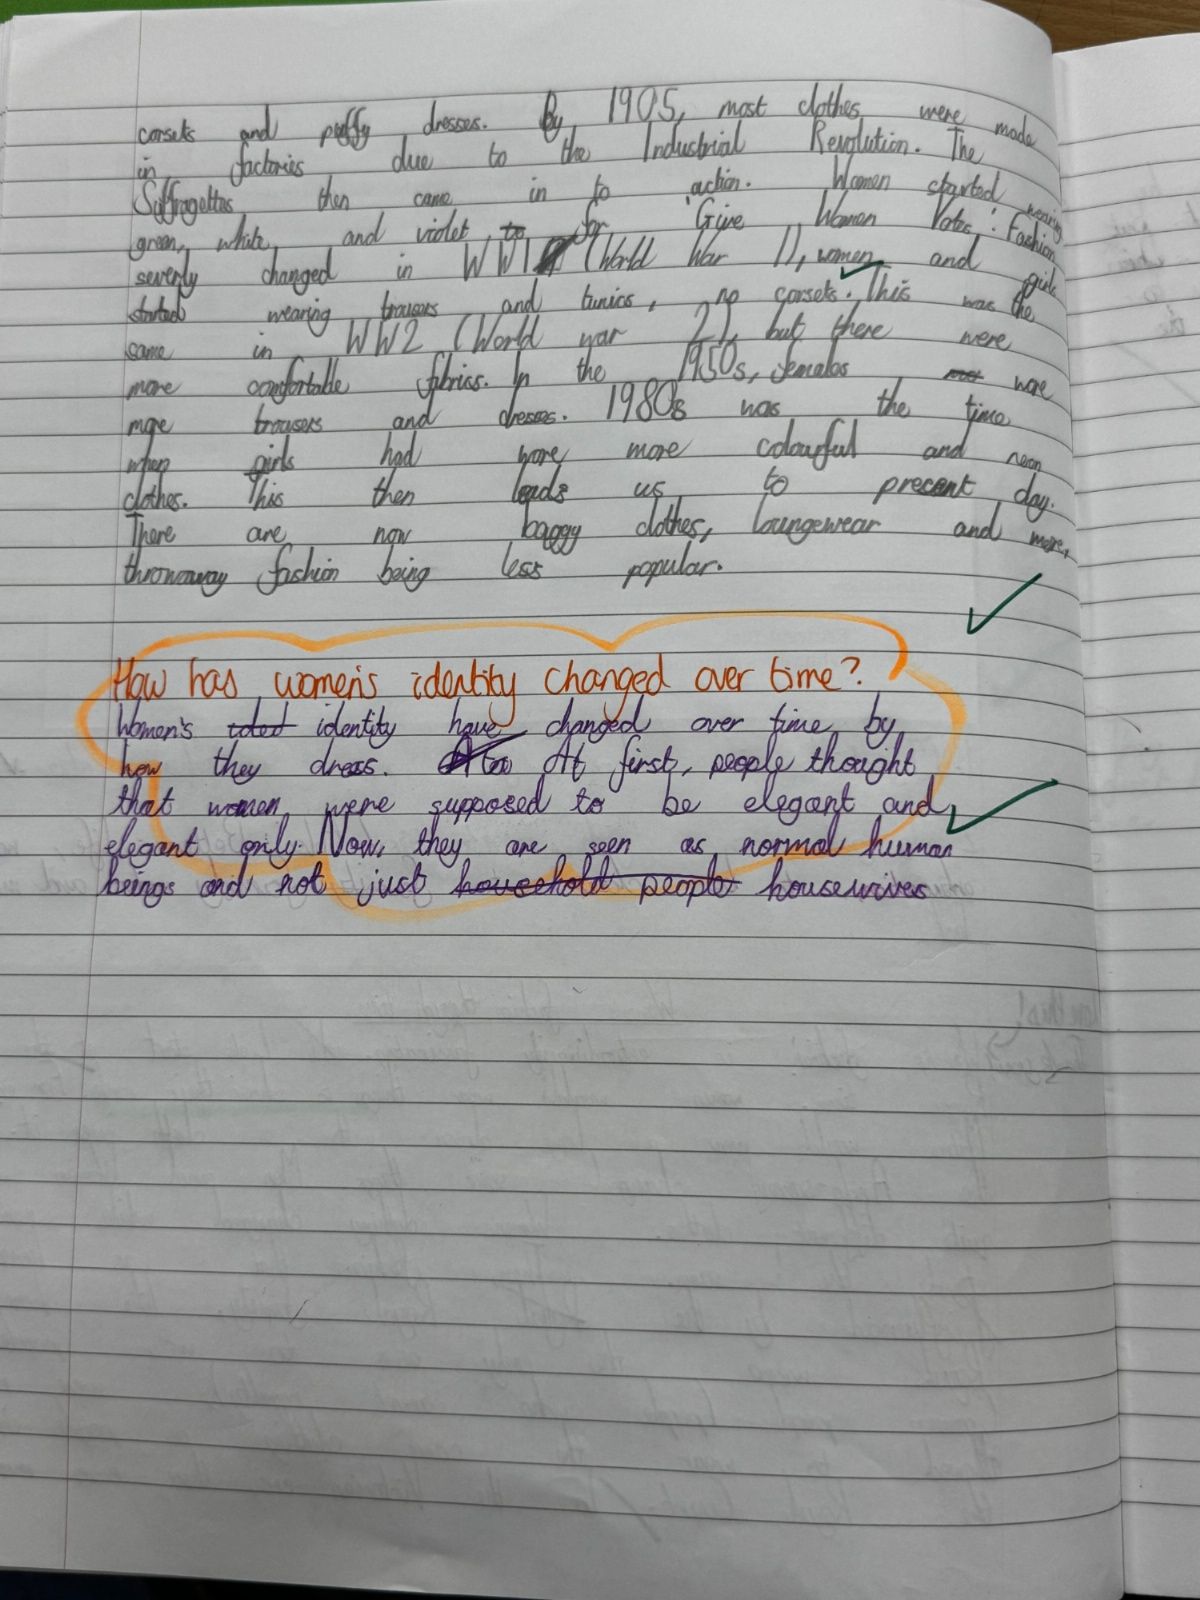 corsets and puffy dresses. By 1905, most clothes were made
in factories due to the Industrial Revolution. The
Suffragettes then came in to action. Women started wearing
green, white, and violet to for 'Give Women Votes'. Fashion
severly changed in WW1 (World War 1), women and girls
started wearing trousers and tunics, no corsets. This was the
same in WW2 (World war 2), but there were
more comfortable fibrics. In the 1950s, females wore
more trousers and dresses. 1980s was the time
when girls had wore more colourful and neon
clothes. This then leads us to present day.
There are now baggy clothes, loungewear and more,
throwaway fashion being less popular.
How has women's identity changed over time?
Women's identity have changed over time by
how they dress. At first, people thought
that women were supposed to be elegant and
elegant only. Now, they are seen as normal human
beings and not just household people housewives